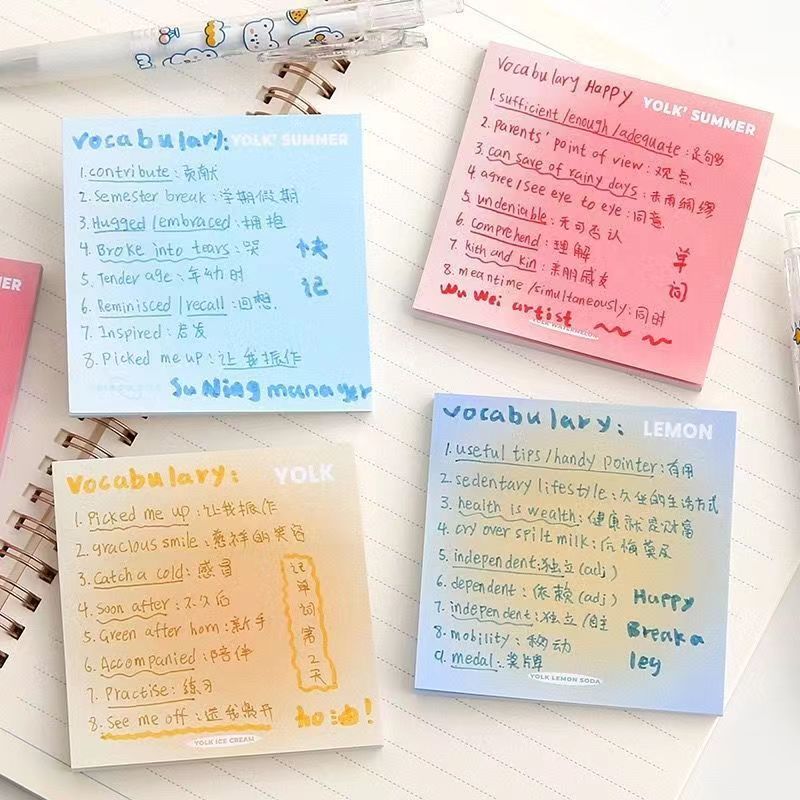 vocabulary: YOLK' SUMMER
1. contribute: 贡献
2. Semester break: 学期假期
3. Hugged/embraced: 拥抱
4. Broke into tears: 哭
5. Tender age: 年幼时
6. Reminisced/recall: 回想.
7. Inspired: 启发
8. Picked me up: 让我振作
快
记
Su Ning manayer
vocabulary Happy YOLK' SUMMER
1. sufficient/enough/adequate: 足够
2. parents' point of view: 观点
3. can save of rainy days: 未雨绸缪
4 agree/see eye to eye: 同意.
5. undeniable: 无可否认
6. comprehend: 理解
7. kith and kin: 亲朋戚友
8. meantime/simultaneously: 同时
单
词
Wu Wei artist
YOLK WATERMELON
ER
vocabulary: YOLK
1. Picked me up: 让我振作
2. gracious smile: 慈祥的笑容
3. Catch a cold: 感冒
4. soon after: 不久后
5. Green after horn: 新手
6. Accompanied: 陪伴
7. Practise: 练习
8. See me off: 送我离开
记
单
词
第
2
天
YOLK ICE CREAM
vocabulary: LEMON
1. useful tips/handy pointer: 有用
2. sedentary lifestyle: 久坐的生活方式
3. health is wealth: 健康就是财富
4. cry over spilt milk: 后悔莫及
5. independent: 独立(adj)
6. dependent: 依赖(adj)
7. independent: 独立/自主
8. mobility: 移动
9. medal: 奖牌
Happy
Break a
leg
YOLK LEMON SODA